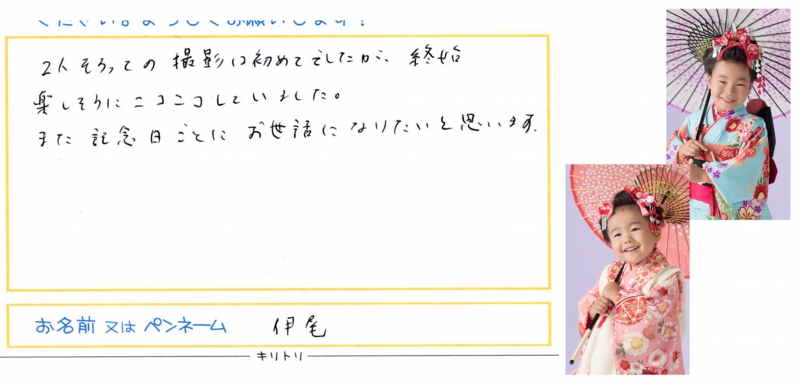 ください。よろしくお願いします！
2人そろっての撮影は初めてでしたが、終始
楽しそうにニコニコしていました。
また記念日ごとにお世話になりたいと思います。
お名前又はペンネーム 伊尾
キリトリ